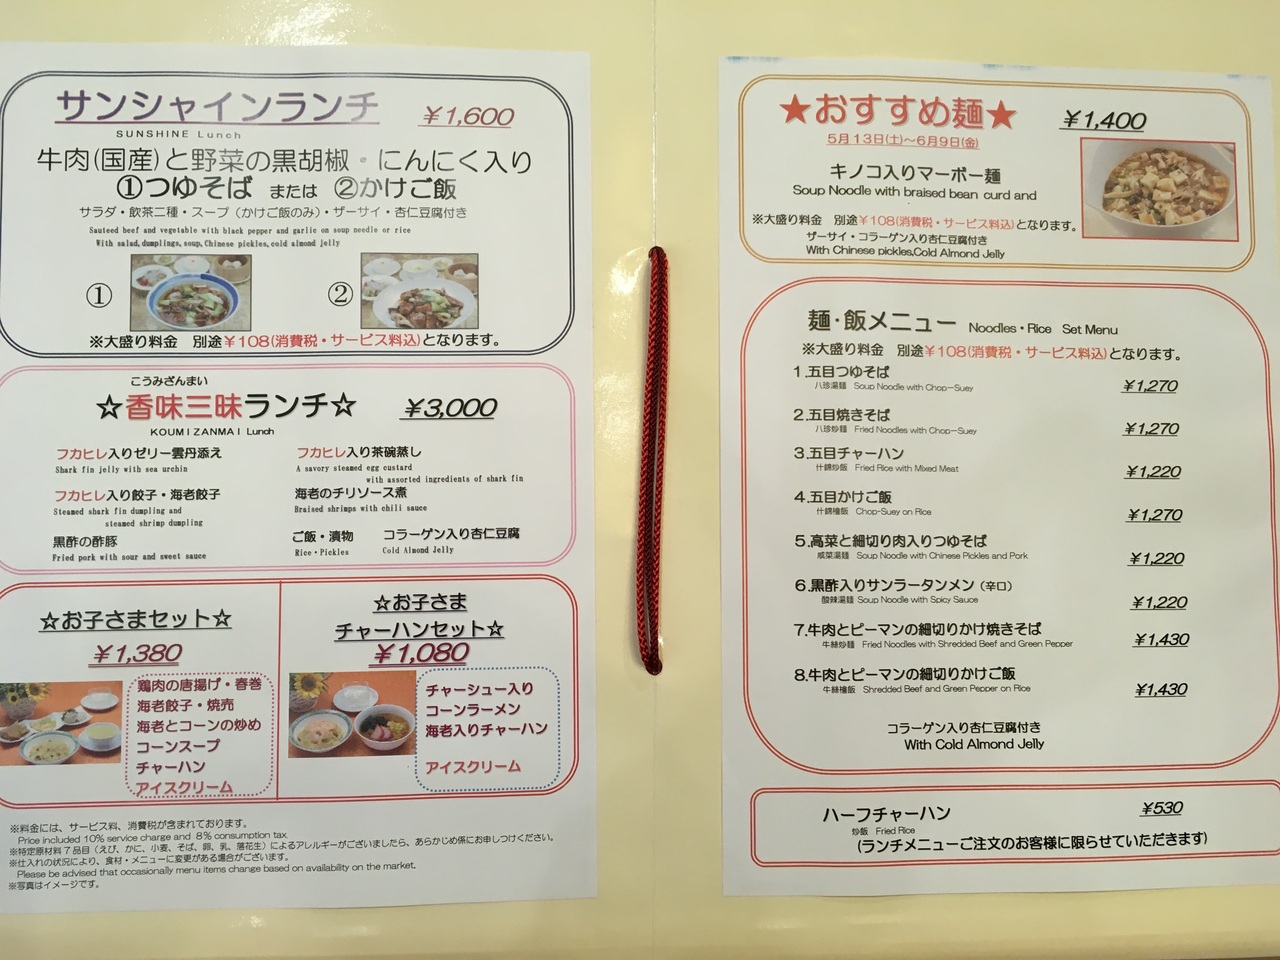 サンシャインランチ ￥1,600
SUNSHINE Lunch
牛肉(国産)と野菜の黒胡椒・にんにく入り
①つゆそば または ②かけご飯
サラダ・飲茶二種・スープ（かけご飯のみ）・ザーサイ・杏仁豆腐付き
Sauteed beef and vegetable with black pepper and garlic on soup needle or rice
With salad,dumplings,soup,Chinese pickles,cold almond jelly
① ②
※大盛り料金 別途￥108(消費税・サービス料込)となります。
こうみざんまい
☆香味三昧ランチ☆ ￥3,000
KOUMIZANMAI Lunch
フカヒレ入りゼリー雲丹添え
Shark fin jelly with sea urchin
フカヒレ入り茶碗蒸し
A savory steamed egg custard
with assorted ingredients of shark fin
フカヒレ入り餃子・海老餃子
Steamed shark fin dumpling and
steamed shrimp dumpling
海老のチリソース煮
Braised shrimps with chili sauce
黒酢の酢豚
Fried pork with sour and sweet sauce
ご飯・漬物
Rice・Pickles
コラーゲン入り杏仁豆腐
Cold Almond Jelly
☆お子さまセット☆
￥1,380
鶏肉の唐揚げ・春巻
海老餃子・焼売
海老とコーンの炒め
コーンスープ
チャーハン
アイスクリーム
☆お子さま
チャーハンセット☆
￥1,080
チャーシュー入り
コーンラーメン
海老入りチャーハン
アイスクリーム
※料金には、サービス料、消費税が含まれております。
Price included 10% service charge and 8% consumption tax.
※特定原材料７品目（えび、かに、小麦、そば、卵、乳、落花生）によるアレルギーがございましたら、あらかじめ係にお申しつけください。
※仕入れの状況により、食材・メニューに変更がある場合がございます。
Please be advised that occasionally menu items change based on availability on the market.
※写真はイメージです。
★おすすめ麺★ ￥1,400
5月13日(土)～6月9日(金)
キノコ入りマーボー麺
Soup Noodle with braised bean curd and
※大盛り料金 別途￥108(消費税・サービス料込)となります。
ザーサイ・コラーゲン入り杏仁豆腐付き
With Chinese pickles,Cold Almond Jelly
麺・飯メニュー Noodles・Rice Set Menu
※大盛り料金 別途￥108(消費税・サービス料込)となります。
1.五目つゆそば ￥1,270
八珍湯麺 Soup Noodle with Chop-Suey
2.五目焼きそば ￥1,270
八珍炒麺 Fried Noodles with Chop-Suey
3.五目チャーハン ￥1,220
什錦炒飯 Fried Rice with Mixed Meat
4.五目かけご飯 ￥1,270
什錦燴飯 Chop-Suey on Rice
5.高菜と細切り肉入りつゆそば ￥1,220
咸菜湯麺 Soup Noodle with Chinese Pickles and Pork
6.黒酢入りサンラータンメン（辛口） ￥1,220
酸辣湯麺 Soup Noodle with Spicy Sauce
7.牛肉とピーマンの細切りかけ焼きそば ￥1,430
牛絲炒麺 Fried Noodles with Shredded Beef and Green Pepper
8.牛肉とピーマンの細切りかけご飯 ￥1,430
牛絲燴飯 Shredded Beef and Green Pepper on Rice
コラーゲン入り杏仁豆腐付き
With Cold Almond Jelly
ハーフチャーハン ￥530
炒飯 Fried Rice
(ランチメニューご注文のお客様に限らせていただきます)